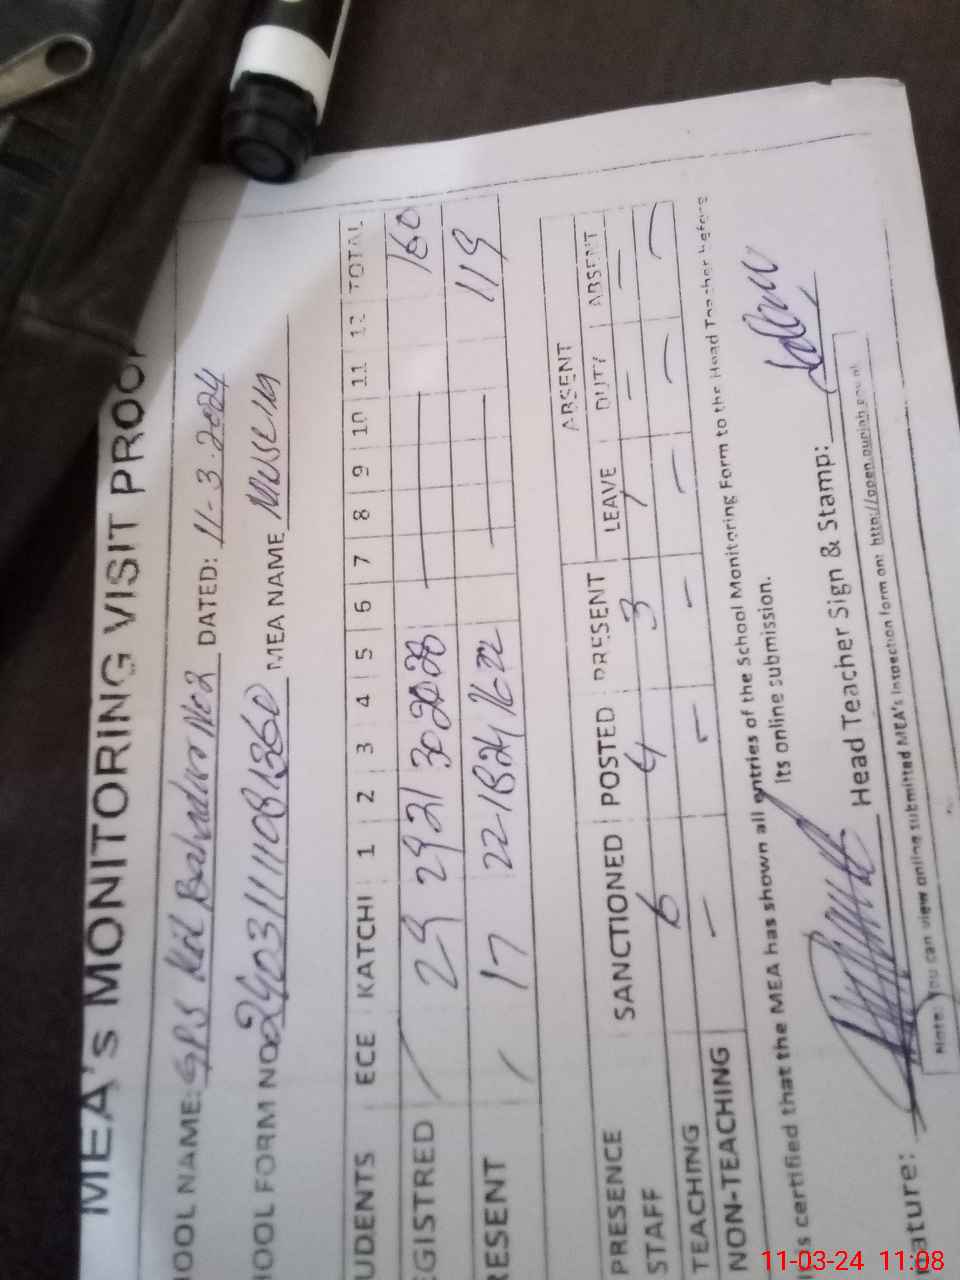 MEA's MONITORING VISIT PROOF
HOOL NAME: GPS Kot Bahadur No 2 DATED: 11-3-2024
HOOL FORM NO 2403111108 1360 MEA NAME
UDENTS ECE KATCHI 1 2 3 4 5 6 7 8 9 10 11 12 TOTAL
EGISTRED / 29 29 21 30 160
RESENT / 17 22 18 24 16 22 119
PRESENCE SANCTIONED POSTED PRESENT ABSENT
STAFF LEAVE DUTY ABSENT
TEACHING 6 4 3 1 – –
NON-TEACHING – – – – – –
It is certified that the MEA has shown all entries of the School Monitoring Form to the Head Teacher before
its online submission.
nature: Head Teacher Sign & Stamp:
Note: You can view online submitted MEA's Inspection form on: http://open.punjab.gov.pk
11-03-24 11:08